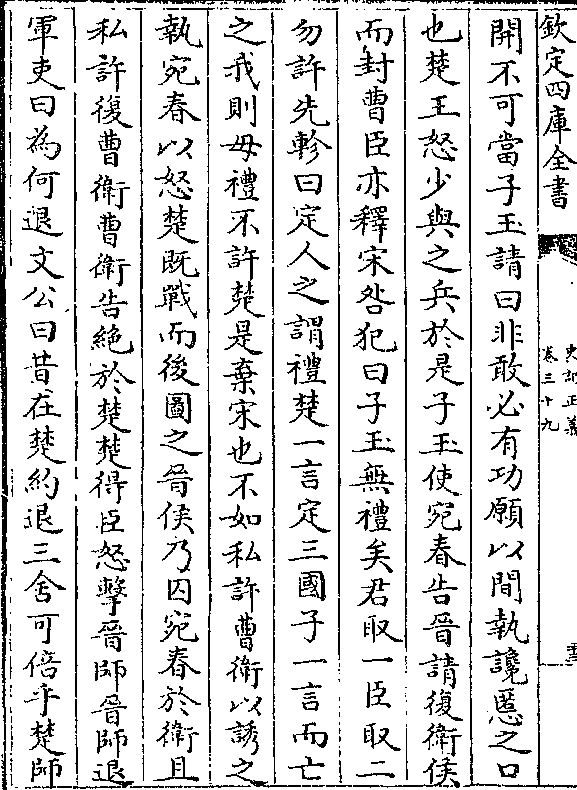 欽定四庫全書
史記正義
卷三十九
開不可當子玉請曰非敢必有功願以間執讒慝之口
也楚王怒少與之兵於是子玉使宛春告晉請復衛侯
而封曹臣亦釋宋咎犯曰子玉無禮矣君取一臣取二
勿許先軫曰定人之謂禮楚一言定三國子一言而亡
之我則毋禮不許楚是棄宋也不如私許曹衛以誘之
執宛春以怒楚既戰而後圖之晉侯乃囚宛春於衛且
私許復曹衛曹衛告絶於楚楚得臣怒擊晉師晉師退
軍吏曰為何退文公曰昔在楚約退三舍可倍乎楚師